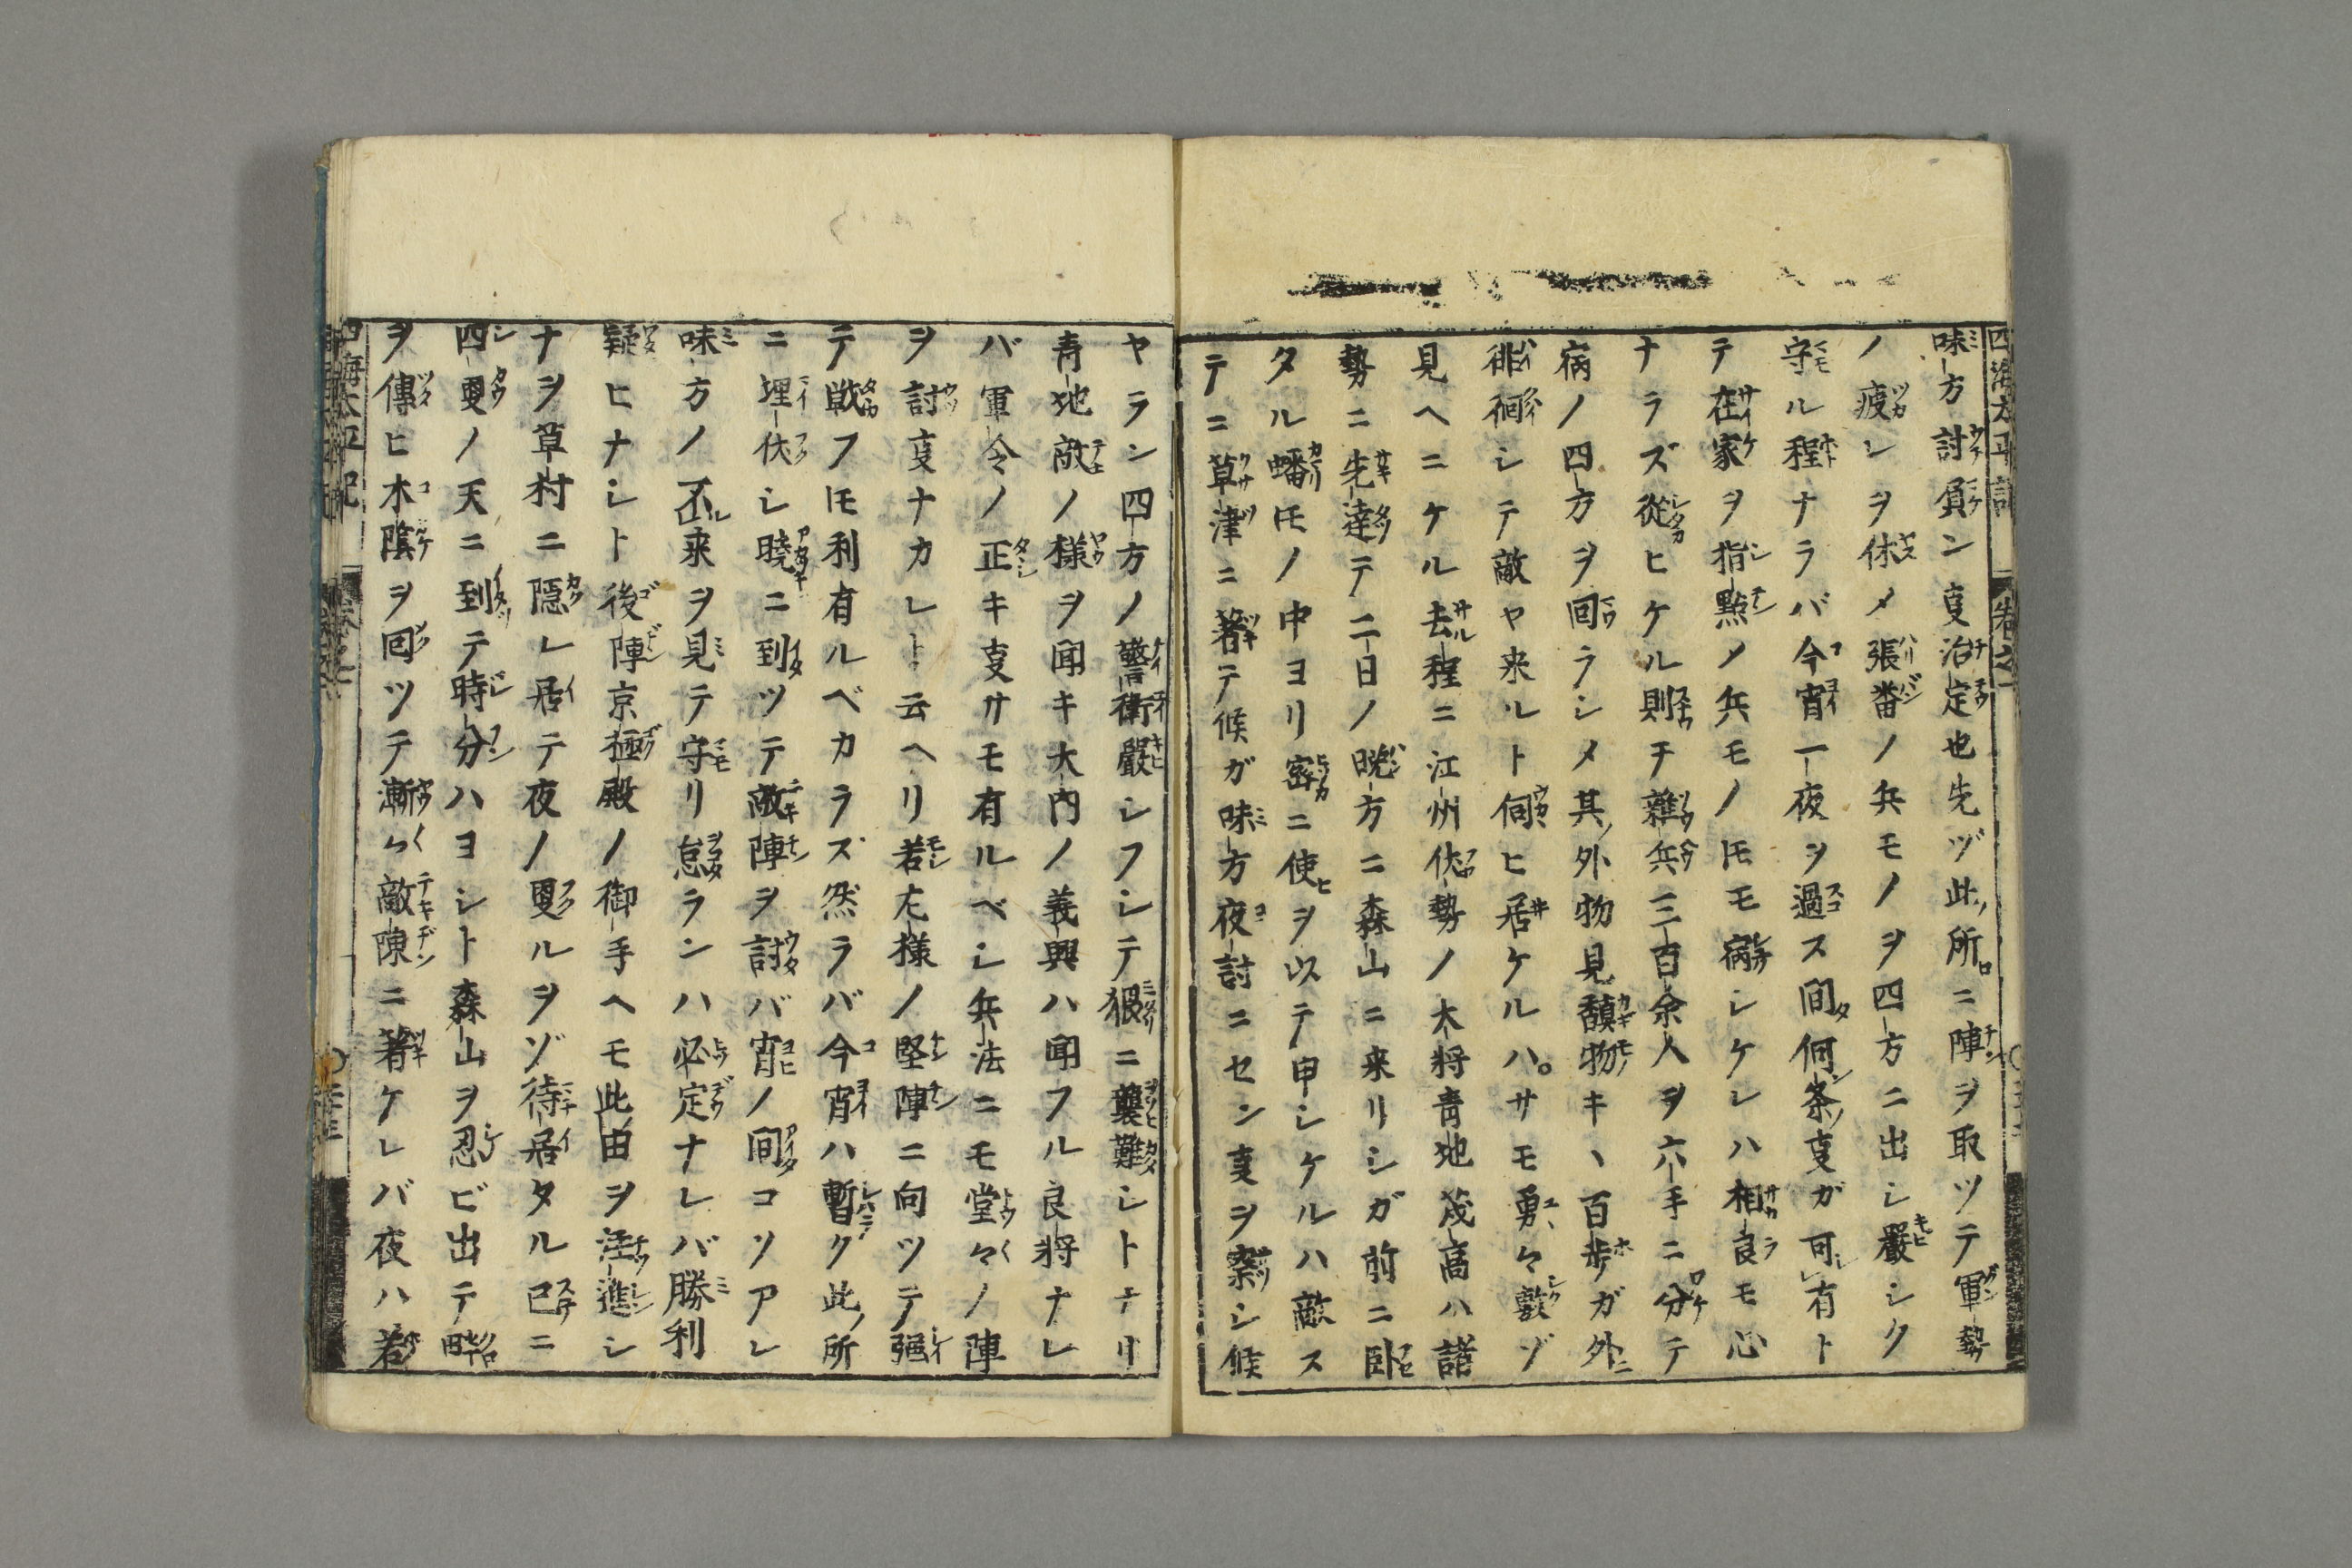 味方討負ン𫝆治定也先ヅ此所ニ陣ヲ取ツテ軍勢
ノ疲レヲ休メ張番ノ兵モノヲ四方ニ出シ嚴シク
守ル程ナラバ今宵一夜ヲ過ス間何条㕝ガ可有ト
テ在家ヲ指點メ兵モノ𪜈モ病シケレハ相良モ心
ナラズ從ヒケル則チ雜兵三百余人ヲ六手ニ分テ
病ノ四方ヲ囬ラシメ其外物見馩物キヽ百歩ガ外ニ
徘徊シテ敵ヤ来ルト伺ヒ居ケルハ。サモ勇々敷ゾ
見ヘニケル去程ニ江州伏勢ノ大将青地茂高ハ諸
勢ニ先達テ二日ノ晩方ニ森山ニ来リシガ前ニ臥
タル蟠𪜈ノ中ヨリ密ニ使ヲ以テ申シケルハ敵ス
テニ草津ニ著テ候ガ味方夜討ニセン㕝ヲ察シ候
ヤラン四方ノ警衛嚴シフシテ猥ニ襲難シトナリ
青地敵ノ様ヲ聞キ大内ノ義興ハ聞フル良将ナレ
バ軍令ノ正キ㕝サモ有ルベシ兵法ニモ堂々ノ陣
ヲ討㕝ナカレト云ヘリ若左様ノ堅陣ニ向ツテ强
テ戦フ𪜈利有ルベカラズ然ラバ今宵ハ暫ク此所
ニ埋伏シ曉ニ到ツテ敵陣ヲ討バ宵ノ間コソアレ
味方ノ不来ヲ見テ守リ怠ランハ必定ナレバ勝利
疑ヒナシト後陣京極殿ノ御手ヘモ此由ヲ注進シ
ナヲ草村ニ隠レ居テ夜ノ更ルヲゾ待居タル已ニ
四更ノ天ニ到テ時分ハヨシト森山ヲ忍ビ出テ畔
ヲ傳ヒ木陰ヲ囬ツテ漸々敵陳ニ著ケレバ夜ハ若
四海太平記